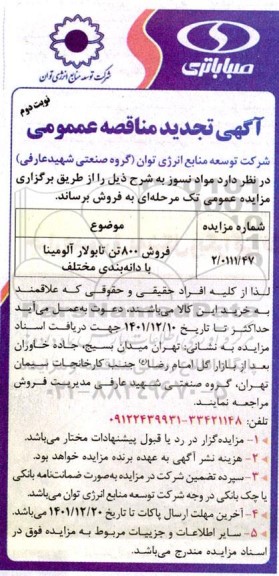 صبا باتری
شرکت توسعه منابع انرژی توان
نوبت دوم
آگهی تجدید مناقصه عممومی
شرکت توسعه منابع انرژی توان (گروه صنعتی شهید عارفی)
در نظر دارد مواد نسوز به شرح ذیل را از طریق برگزاری
مزایده عمومی تک مرحله‌ای به فروش برساند.
شماره مزایده
موضوع
۲/۰۱۱۱/۴۷
فروش ۸۰۰ تن تابولار آلومینا
با دانه‌بندی مختلف
لذا از کلیه افراد حقیقی و حقوقی که علاقمند
به خرید این کالا می‌باشند، دعوت به‌عمل می‌آید
حداکثر تا تاریخ ۱۴۰۱/۱۲/۱۰ جهت دریافت اسناد
مزایده به نشانی: تهران میدان بسیج، جاده خاوران
بعد از پارک گل امام رضا(ع) جنب کارخانجات سیمان
تهران، گروه صنعتی شهید عارفی مدیریت فروش
مراجعه نمایند.
تلفن: ۳۳۴۲۱۱۴۸-۰۹۱۲۲۴۳۹۹۳۱
۱- مزایده‌گزار در رد یا قبول پیشنهادات مختار می‌باشد.
۲- هزینه نشر آگهی به عهده برنده مزایده خواهد بود.
۳- سپرده تضمین شرکت در مزایده به‌صورت ضمانت‌نامه بانکی
یا چک بانکی در وجه شرکت توسعه منابع انرژی توان می‌باشد.
۴- آخرین مهلت ارسال پاکات تا تاریخ ۱۴۰۱/۱۲/۲۰ می‌باشد.
۵- سایر اطلاعات و جزییات مربوط به مزایده فوق در
اسناد مزایده مندرج می‌باشد.